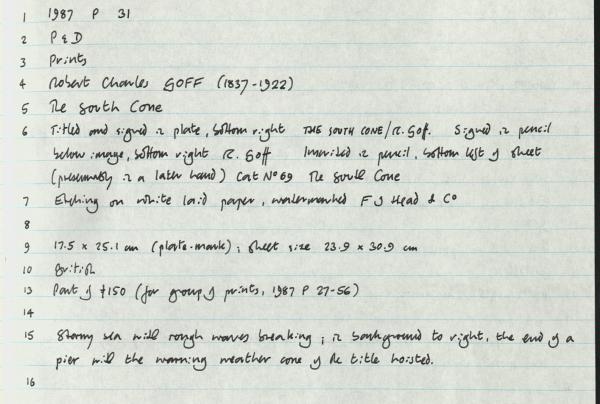 1 1987 P 31
2 P & D
3 Prints
4 Robert Charles GOFF (1837-1922)
5 The South Cone
6 Titled and signed in plate, bottom right THE SOUTH CONE/R. Goff. Signed in pencil
below image, bottom right R. Goff Inscribed in pencil, bottom left of sheet
(presumably in a later hand) Cat No 69 The South Cone
7 Etching on white laid paper, watermarked F J Head & Co
8
9 17.5 x 25.1 cm (plate-mark); sheet size 23.9 x 30.9 cm
10 British
13 Part of £150 (for group of prints, 1987 P 27-56)
14
15 Stormy sea with rough waves breaking; in background to right, the end of a
pier with the warning weather cone of the title hoisted.
16